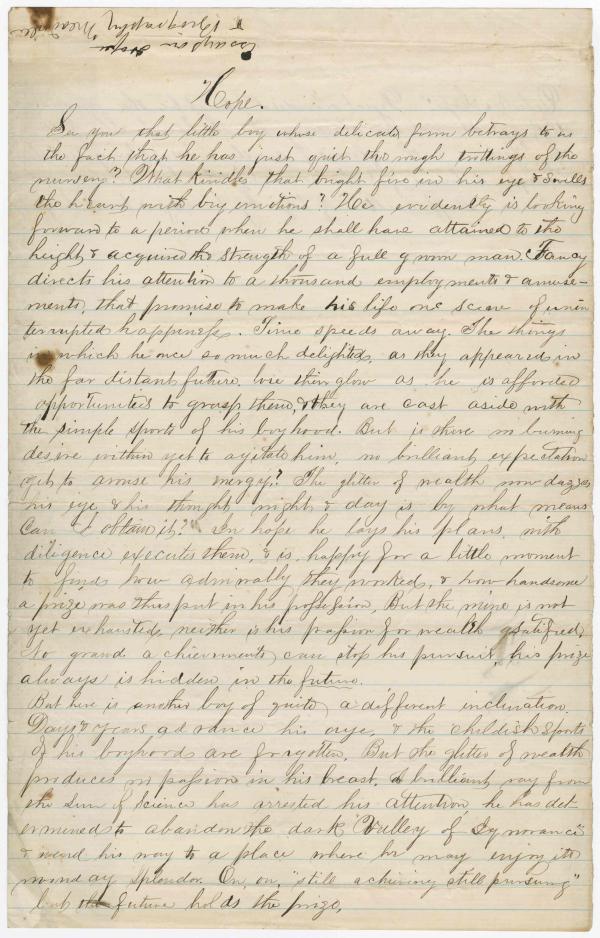 Essays in Hope
& Prosperity
Hope.
See you that little boy whose delicate form betrays to us
the fact that he has just quit the rough trottings of the
nursery? What kindles that bright fire in his eye & swells
the heart with big emotions? He evidently is looking
forward to a period when he shall have attained to the
height & acquired the strength of a full grown man. Fancy
directs his attention to a thousand employments & amuse-
ments, that promise to make his life one scene of unin
terrupted happiness. Time speeds away. The things
in which he once so much delighted, as they appeared in
the far distant future, lose their glow as he is afforded
opportunities to grasp them, & they are cast aside with
the simple sports of his boyhood. But is there no burning
desire within yet to agitate him, no brilliant expectation
yet to arouse his energy? The glitter of wealth now dazzles
his eye, & his thought, night & day is by what means
Can I obtain it?" In hope he lays his plans, with
diligence executes them, & is happy for a little moment
to find how admirably they worked, & how handsome
a prize was thus put in his possession. But the mine is not
yet exhausted, neither is his passion for wealth gratified.
No grand achievments can stop his pursuit, his prize
always is hidden in the future.
But here is another boy of quite a different inclination.
Days & years advance his age, & the childish sports
of his boyhood are forgotten. But the glitter of wealth
produces no passion in his breast. A brilliant ray from
the sun of Science has arrested his attention, he has det-
ermined to abandon the dark "Valley of Ignorance"
& wend his way to a place where he may enjoy its
noonday splendor. On, on, "still achieving still pursuing"
but future holds the prize.